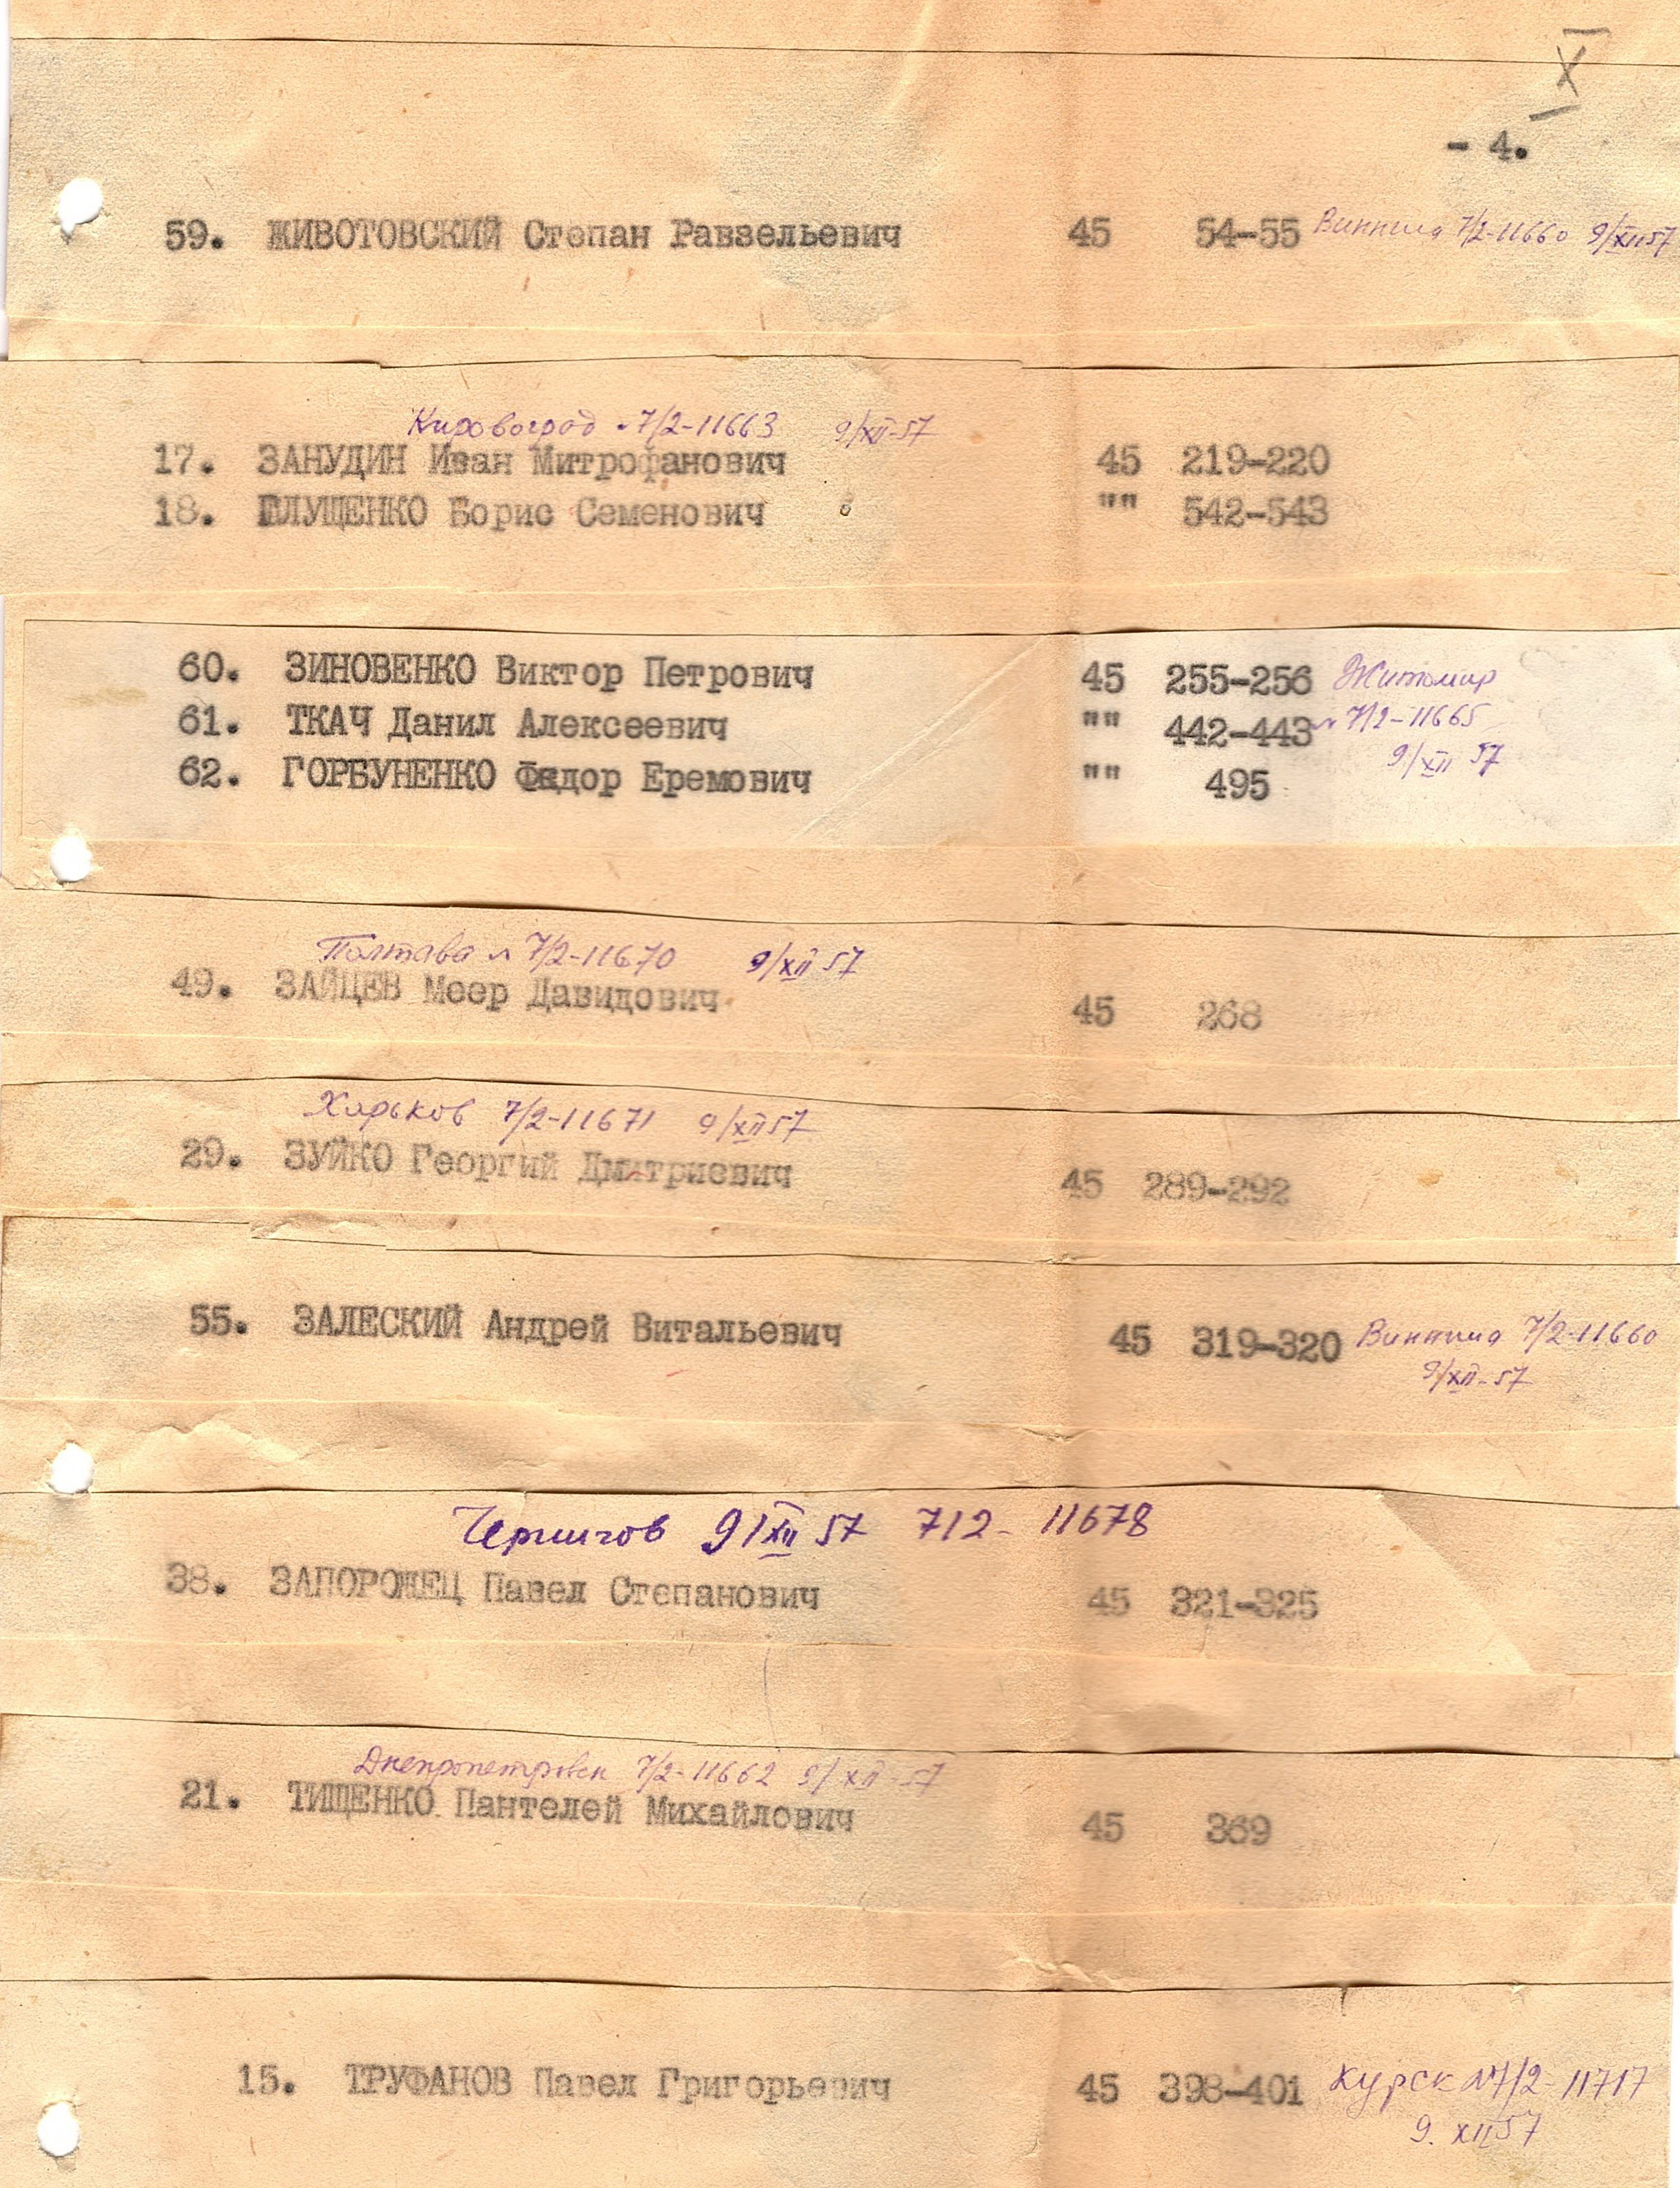 X
- 4.
59. ЖИВОТОВСКИЙ Степан Равзельевич 45 54-55 Винница 7/2-11660 9/XII 57
Кировоград 7/2-11663 9/XII-57
17. ЗАНУДИН Иван Митрофанович 45 219-220
18. ГЛУЩЕНКО Борис Семенович "" 542-543
60. ЗИНОВЕНКО Виктор Петрович 45 255-256 Житомир
61. ТКАЧ Данил Алексеевич "" 442-443 7/2-11665
9/XII 57
62. ГОРБУНЕНКО Федор Еремович "" 495
Полтава 7/2-11670 9/XII 57
49. ЗАЙЦЕВ Меер Давидович 45 268
Харьков 7/2-11671 9/XII 57
29. ЗУЙКО Георгий Дмитриевич 45 289-292
55. ЗАЛЕСКИЙ Андрей Витальевич 45 319-320 Винница 7/2-11660
9/XII-57
Чернигов 9/XII 57 7/2-11678
38. ЗАПОРОЖЕЦ Павел Степанович 45 321-325
Днепропетровск 7/2-11662 9/XII-57
21. ТИЩЕНКО Пантелей Михайлович 45 369
15. ТРУФАНОВ Павел Григорьевич 45 398-401 Курск №7/2-11717
9. XII 57